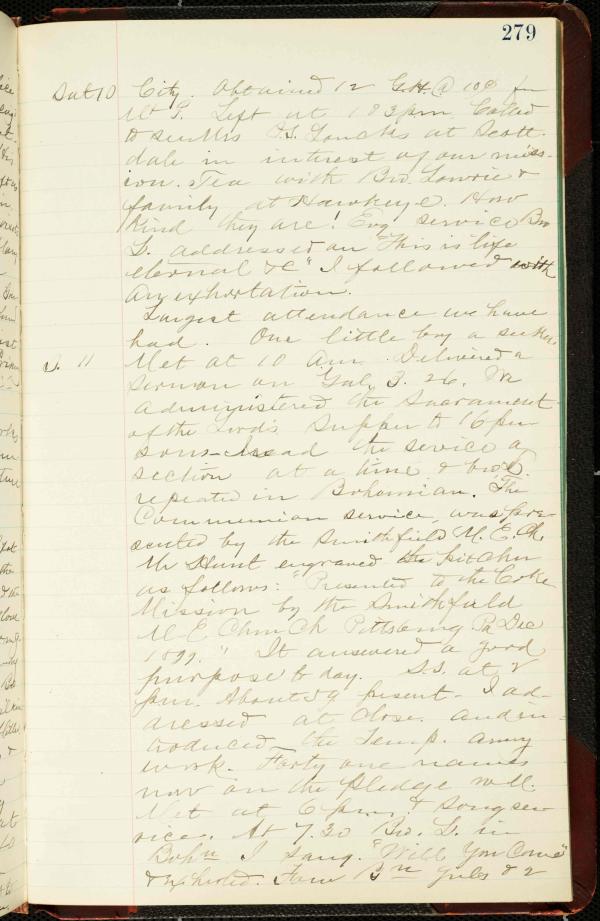 279
Sat 10 City. Obtained 12 G.H. @ 10¢ for
Mt P. Left at 1 03 pm Called
to see Mrs at Scott-
dale in interest of our miss-
ion. Tea with Bro. Lowrie &
family at Hawkeye. How
kind they are! Evg service Bro
L. addressed on "This is life
eternal &c" I followed with
an exhortation.
Largest attendance we have
had. One little boy a seeker.
S. 11 Met at 10 Am. Delivered a
sermon on Gal. 3. 26. We
administered the Sacrament
of the Lord's Supper to 16 per
sons. I read the sevice a
section at a time & bro L.
repeated in Bohemian. The
Communion service, was pre-
sented by the Smithfield M. E. Ch.
Mr Hunt engraved the pitcher
as follows: "Presented to the Coke
Mission by the Smithfield
M E Church Pittsburg Pa Dec
It answered a good
purpose to day. S.S. at 2
pm. About present. I ad-
dressed at close. and in-
troduced the Temp. army
work. Forty one names
now on the pledge roll.
Met at 6 pm. & song ser
vice. At 7.30 Bro. L. in
Bohn I sang. "Will You Come"
& exhorted. Four Bn girls & 2